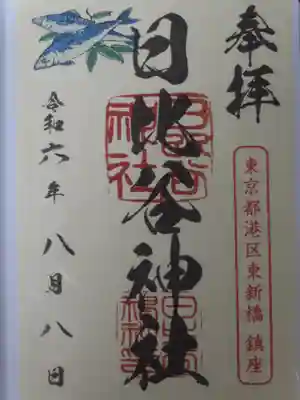 奉拝
東京都港区東新橋 鎮座
日比谷神社
令和六年 八月八日